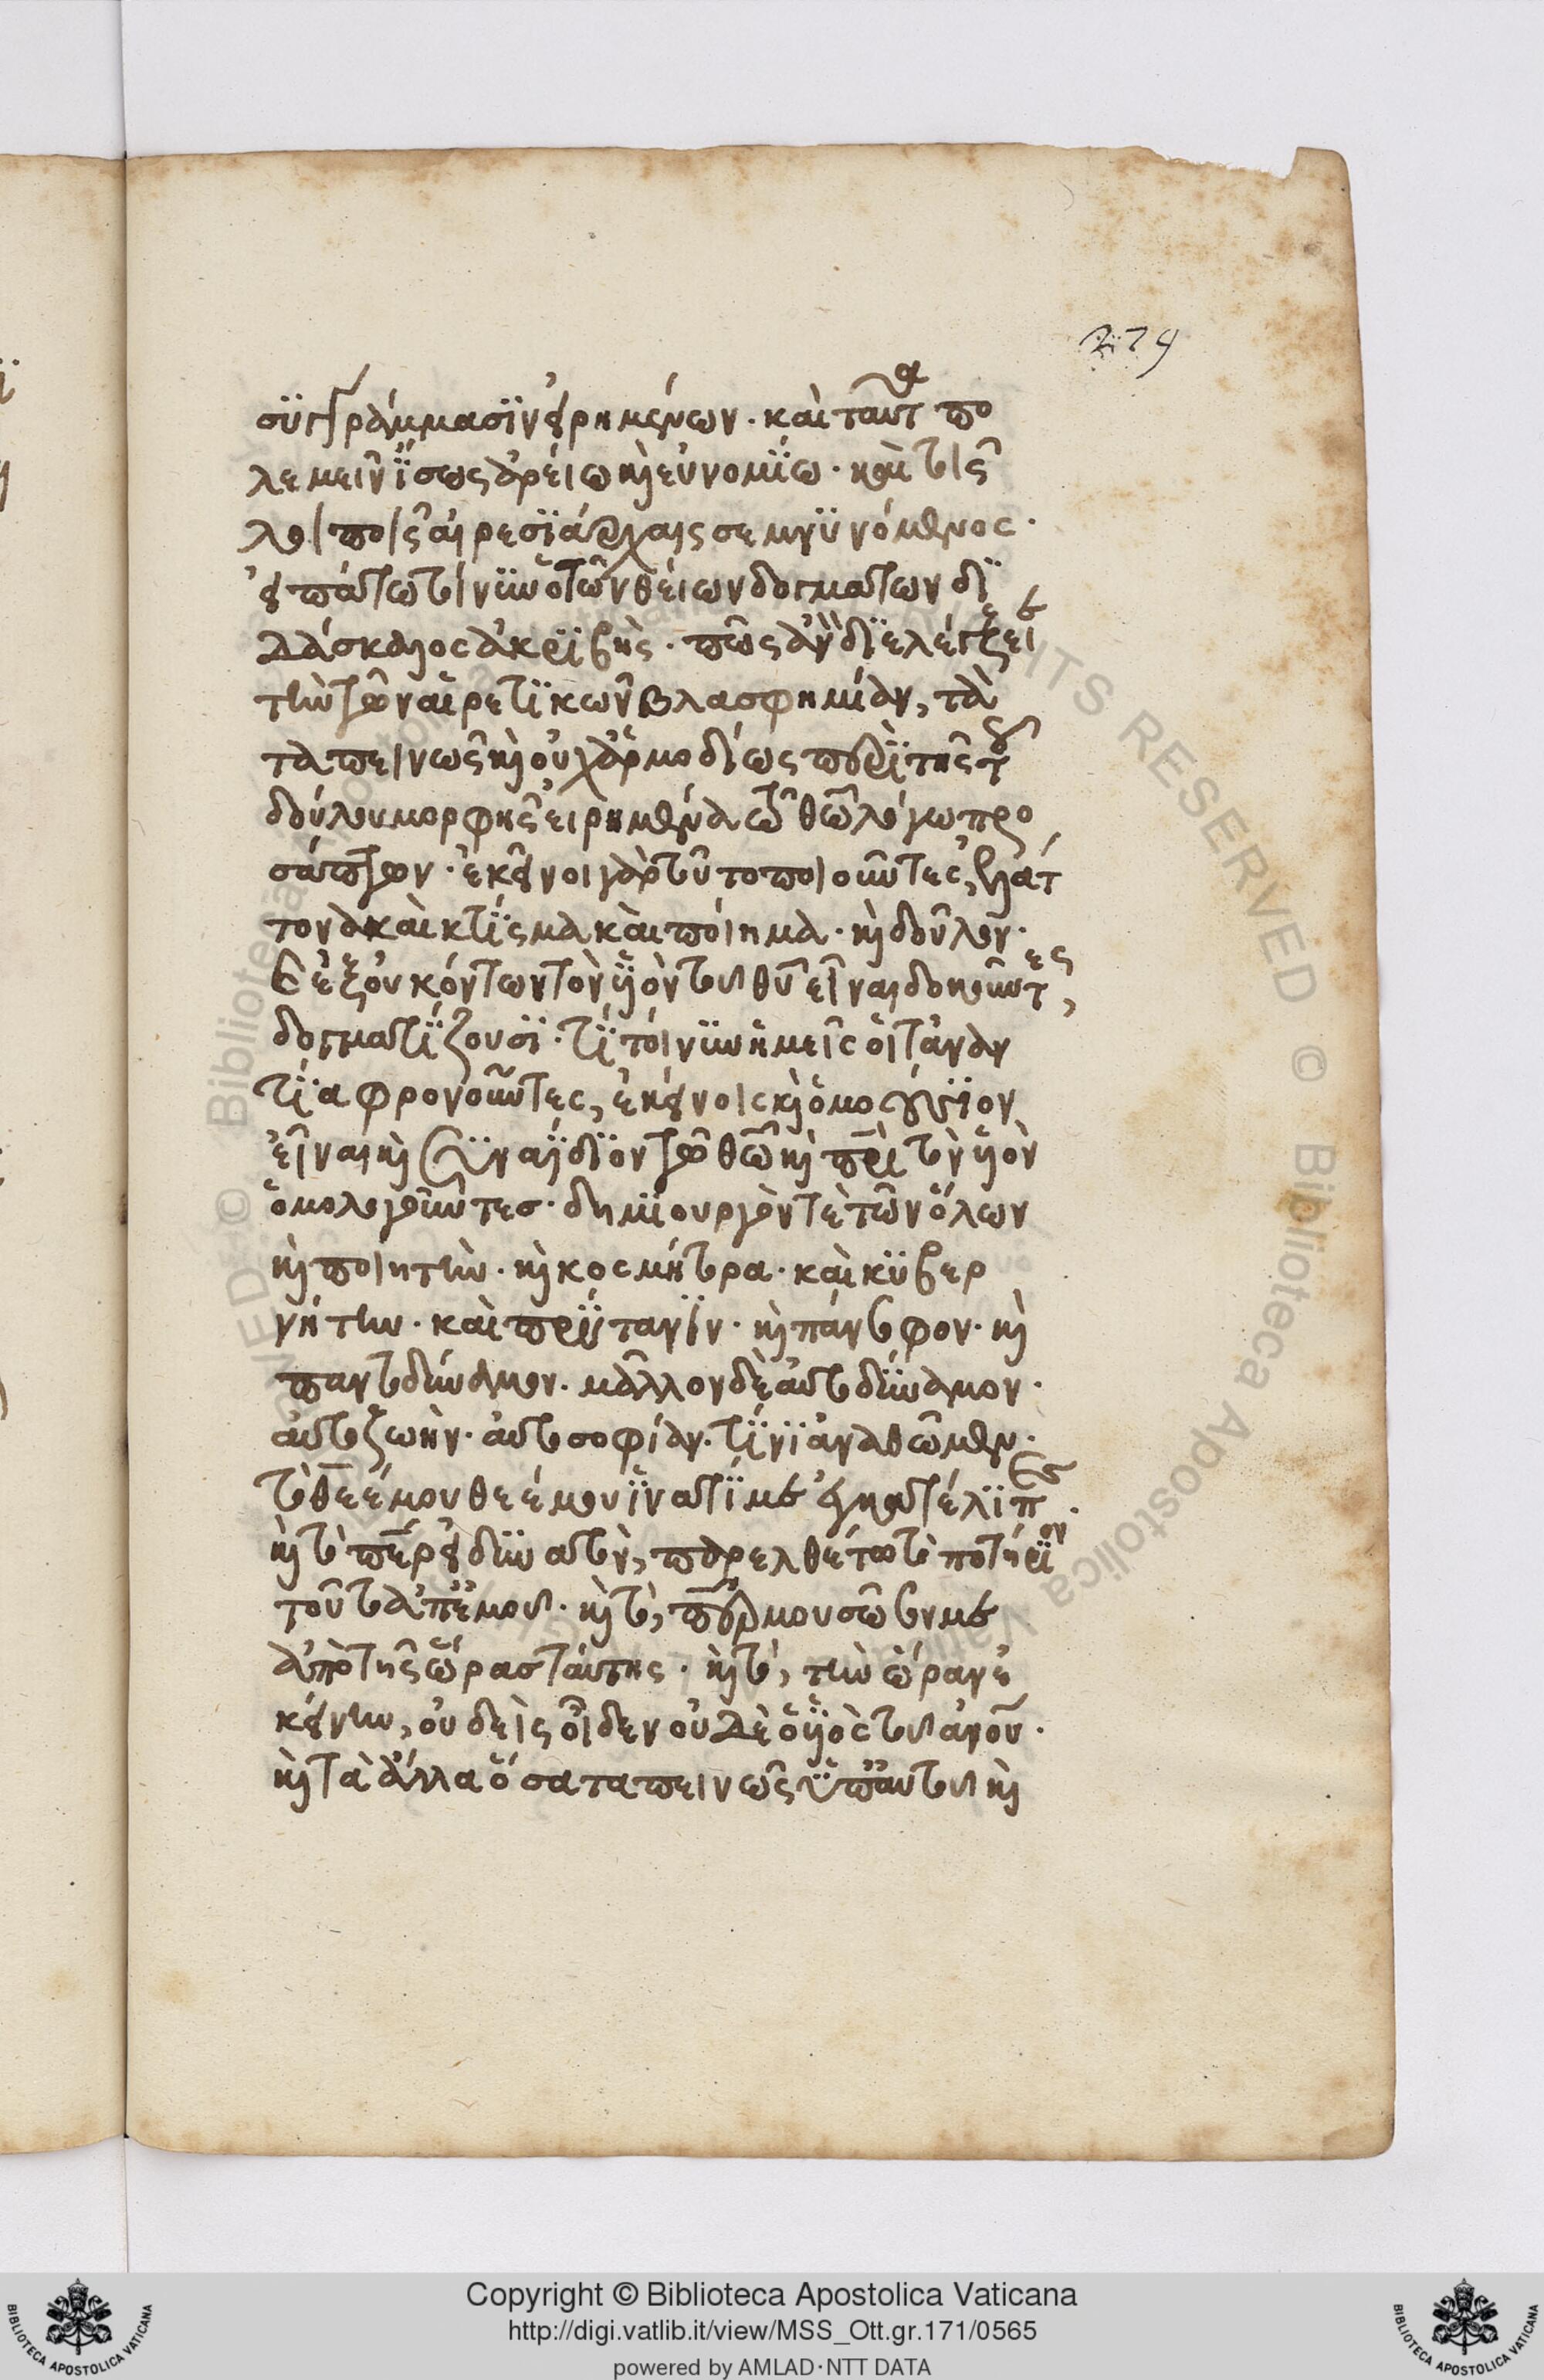 279
συγγράμμασϊν εἰρημένων· καὶ ταῦτα πο
λεμεῖν ἴσως ἀρείω κὶ εὐνομίω· καὶ τοῖς
λοιποῖς αἱρεσϊάρχαις σεμνϋνόμενος·
εἰπάτω τοίνϋν ὁ τῶν θείων δογμάτων δϊ
δάσκαλος ἀκρϊβὴς· πῶς ἂν δϊελέγξειε
τὴν τῶν αἱρετϊκῶν βλασφημίαν, τὰ
ταπεινῶς κὶ οὐχ ἁρμοδίως περὶ τῆς τοῦ
δούλου μορφῆς εἰρημένα τῶ θῶ λόγω προ
σάπτων· ἐκεῖνοι γὰρ τοῦτο ποιοῦντες, ἐλάτ
τονα καὶ κτίσμα καὶ ποίημα· κὶ δοῦλον·
κὶ ἐξ οὐκ ὄντων τὸν ϋἱὸν τοῦ θῦ εἶναι δοκοῦντες,
δογματίζουσϊ· τί τοίνϋν ἡμεῖς οἱ τἀναν
τία φρονοῦντες, ἐκείνοις κὶ ὁμοούσϊον
εἶναι κὶ σϋναΐδϊον τῶ θῶ κὶ πρὶ τὸν ϋἱὸν
ὁμολογοῦντες· δημϊουργὸν τὲ τῶν ὅλων
κὶ ποιητὴν· κὶ κοσμήτορα· καὶ κϋβερ
νήτην· καὶ πρϋτανϊν· κὶ πάνσοφον· κὶ
παντοδύναμον· μᾶλλον δὲ αὐτοδύναμον·
αὐτοζωὴν· αὐτοσοφίαν· τίνϊ ἀναθῶμεν·
τὸ θεέ μου θεέ μου ἵνα τί με ἐγκατέλϊπες·
κὶ τὸ περ εἰ δϋνατὸν, παρελθέτω τὸ ποτήρϊον
τοῦτο ἀπ' ἐμοῦ· κὶ τὸ, πάτερ μου σῶσόν με
ἀπὸ τῆς ὥρας ταύτης· κὶ τὸ, τὴν ὥραν ἐ
κείνην, οὐδεὶς οἶδεν οὐδὲ ὁ ϋἱὸς τοῦ ἀνοῦ·
κὶ τὰ ἄλλα ὅσα ταπεινῶς ϋπ' αὐτοῦ κὶ
Copyright © Biblioteca Apostolica Vaticana
http://digi.vatlib.it/view/MSS_Ott.gr.171/0565
powered by AMLAD·NTT DATA